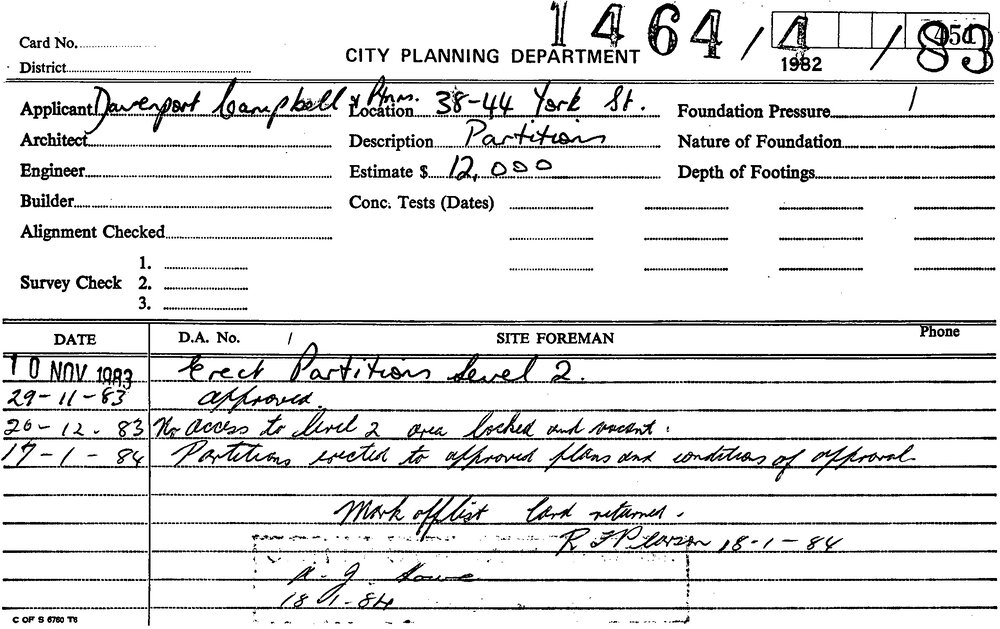 1464/4/83
450
1982
Card No.
CITY PLANNING DEPARTMENT
District
Applicant Davenport Campbell & Ptnrs. Location 38-44 York St. Foundation Pressure /
Architect Description Partitions Nature of Foundation
Engineer Estimate $ 12,000 Depth of Footings
Builder Conc. Tests (Dates)
Alignment Checked
1.
Survey Check 2.
3.
DATE D.A. No. / SITE FOREMAN Phone
10 NOV 1983 Erect Partitions Level 2.
29-11-83 approved.
20-12-83 No access to level 2 area locked and vacant.
17-1-84 Partitions erected to approved plans and conditions of approval
Mark off list Card returned.
R F Pearson 18-1-84
A. J. Howe
18 1-84
C OF S 6760 T6